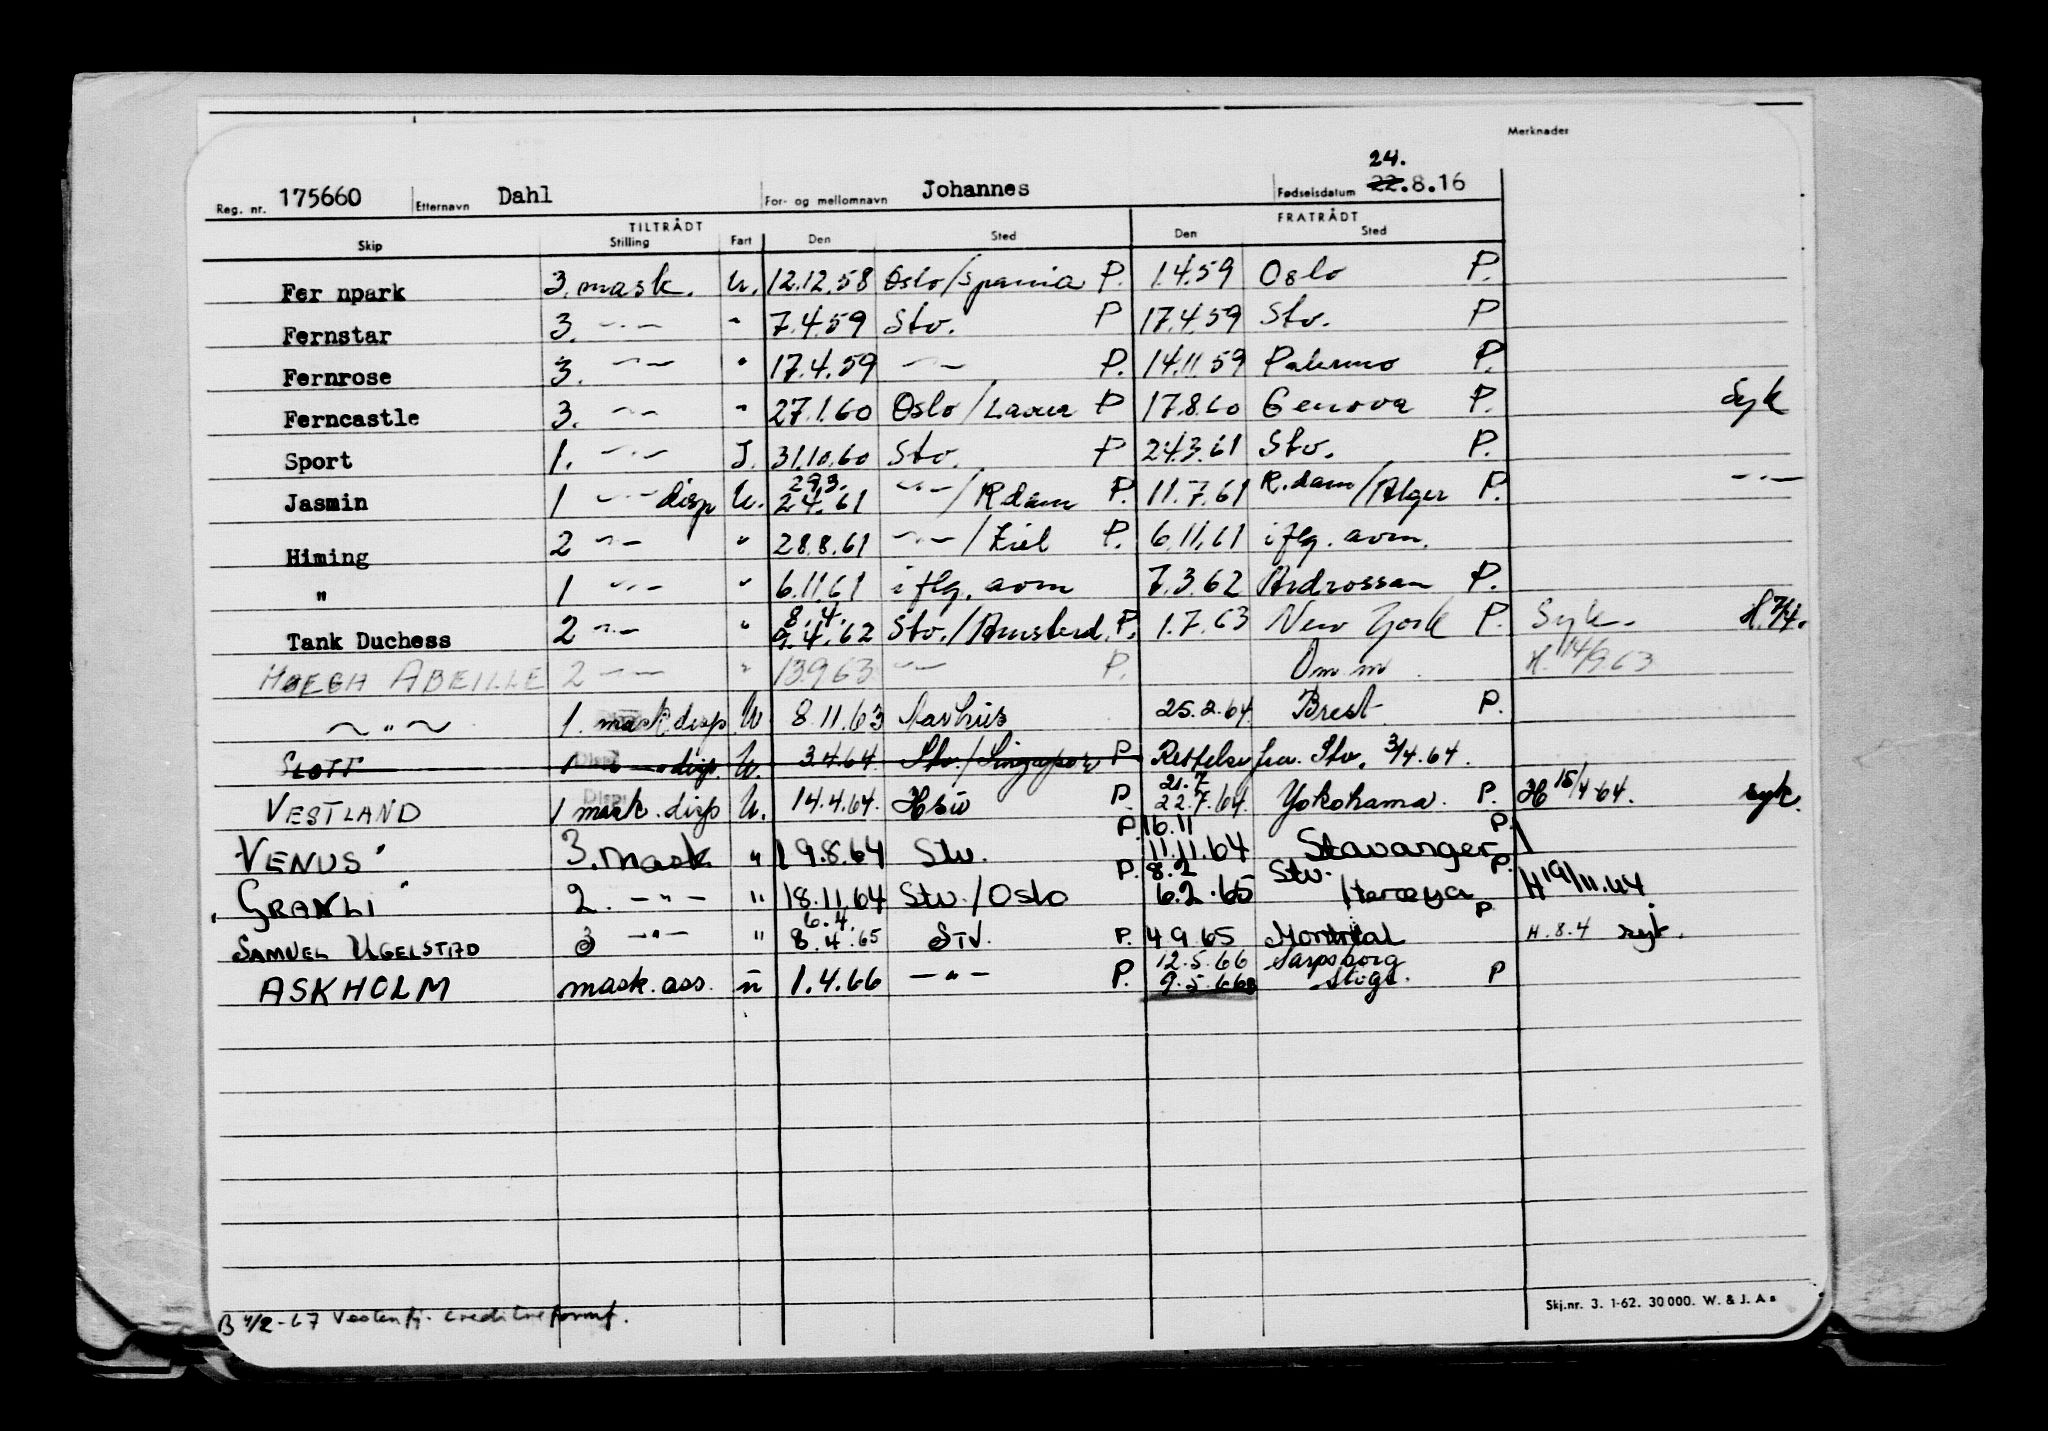 Merknader
24.
Reg. nr. 175660 Etternavn Dahl For- og mellomnavn Johannes Fødselsdatum 22.8.16
TILTRÅDT FRATRÅDT
Skip Stilling Fart Den Sted Den Sted
Fer npark 3. mask. U. 12.12.58 Oslo/Spania P. 1.4.59 Oslo P.
Fernstar 3. -"- " 7.4.59 Stv. P 17.4.59 Stv. P
Fernrose 3. -"- " 17.4.59 -"- P. 14.11.59 Palermo P.
Ferncastle 3. -"- " 27.1.60 Oslo/ P 17.8.60 Genova P. Syk
Sport 1. -"- J. 31.10.60 Stv. P 24.3.61 Stv. P.
29.3.
Jasmin 1 -"- disp U. 24.61 -"-/R.dam P. 11.7.61 R.dam/Alger P. -"-
Himing 2 -"- " 28.8.61 -"-/Kiel P. 6.11.61 i flg. avm.
" 1 -"- " 6.11.61 i flg. avm 7.3.62 Ardrossan P.
8.4.
Tank Duchess 2 -"- " 9.4.62 Stv./Amsterd. P. 1.7.63 New York P. Syk. H.
HØEGH ABEILLE 2 -"- " 13.9.63 -"- P. Om m. H. 14/9.63
-"- 1. mask.disp. U. 8.11.63 Aarhus 25.2.64 Brest. P.
SLOTT 1 -"- disp. U. 3.4.64 Stv./Singapor P Rettelse fra Stv. 3/4.64.
21.7
VESTLAND 1 mask. disp U. 14.4.64. P 22.7.64 Yokohama. P. H 15/4-64. syk.
P. 16.11 P.
VENUS 3. mask " 19.8.64 Stv. 11.11.64 Stavanger
P. 8.2 Stv. P.
GRANLI 2. -"- " 18.11.64 Stv./Oslo 6.2.65 /Herøya P H 19/11.64
6.4.
SAMUEL UGELSTAD 3 -"- " 8.4.65 STV. P. 4 9 65 Montreal H. 8.4 syk.
12.5.66 Sarpsborg
ASKHOLM mask. ass. " 1.4.66 -"- P. 9.5.66 P
Skj.nr. 3. 1-62. 30 000. W. & J. A s
B 4/2-67 Vestenfj. creditreform.